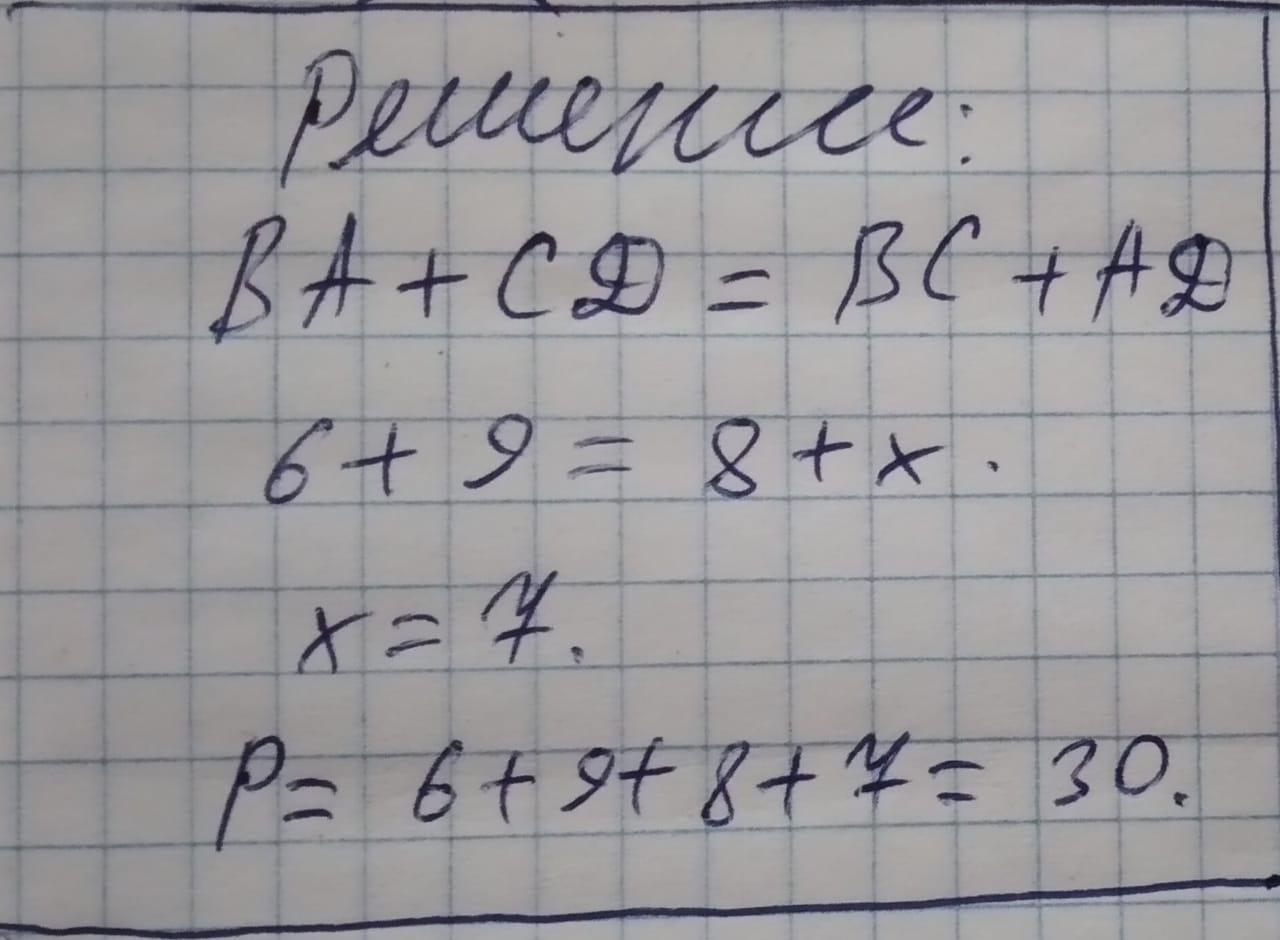 Решение:
BA + CD = BC + AD
6 + 9 = 8 + x.
x = 7.
P = 6 + 9 + 8 + 7 = 30.